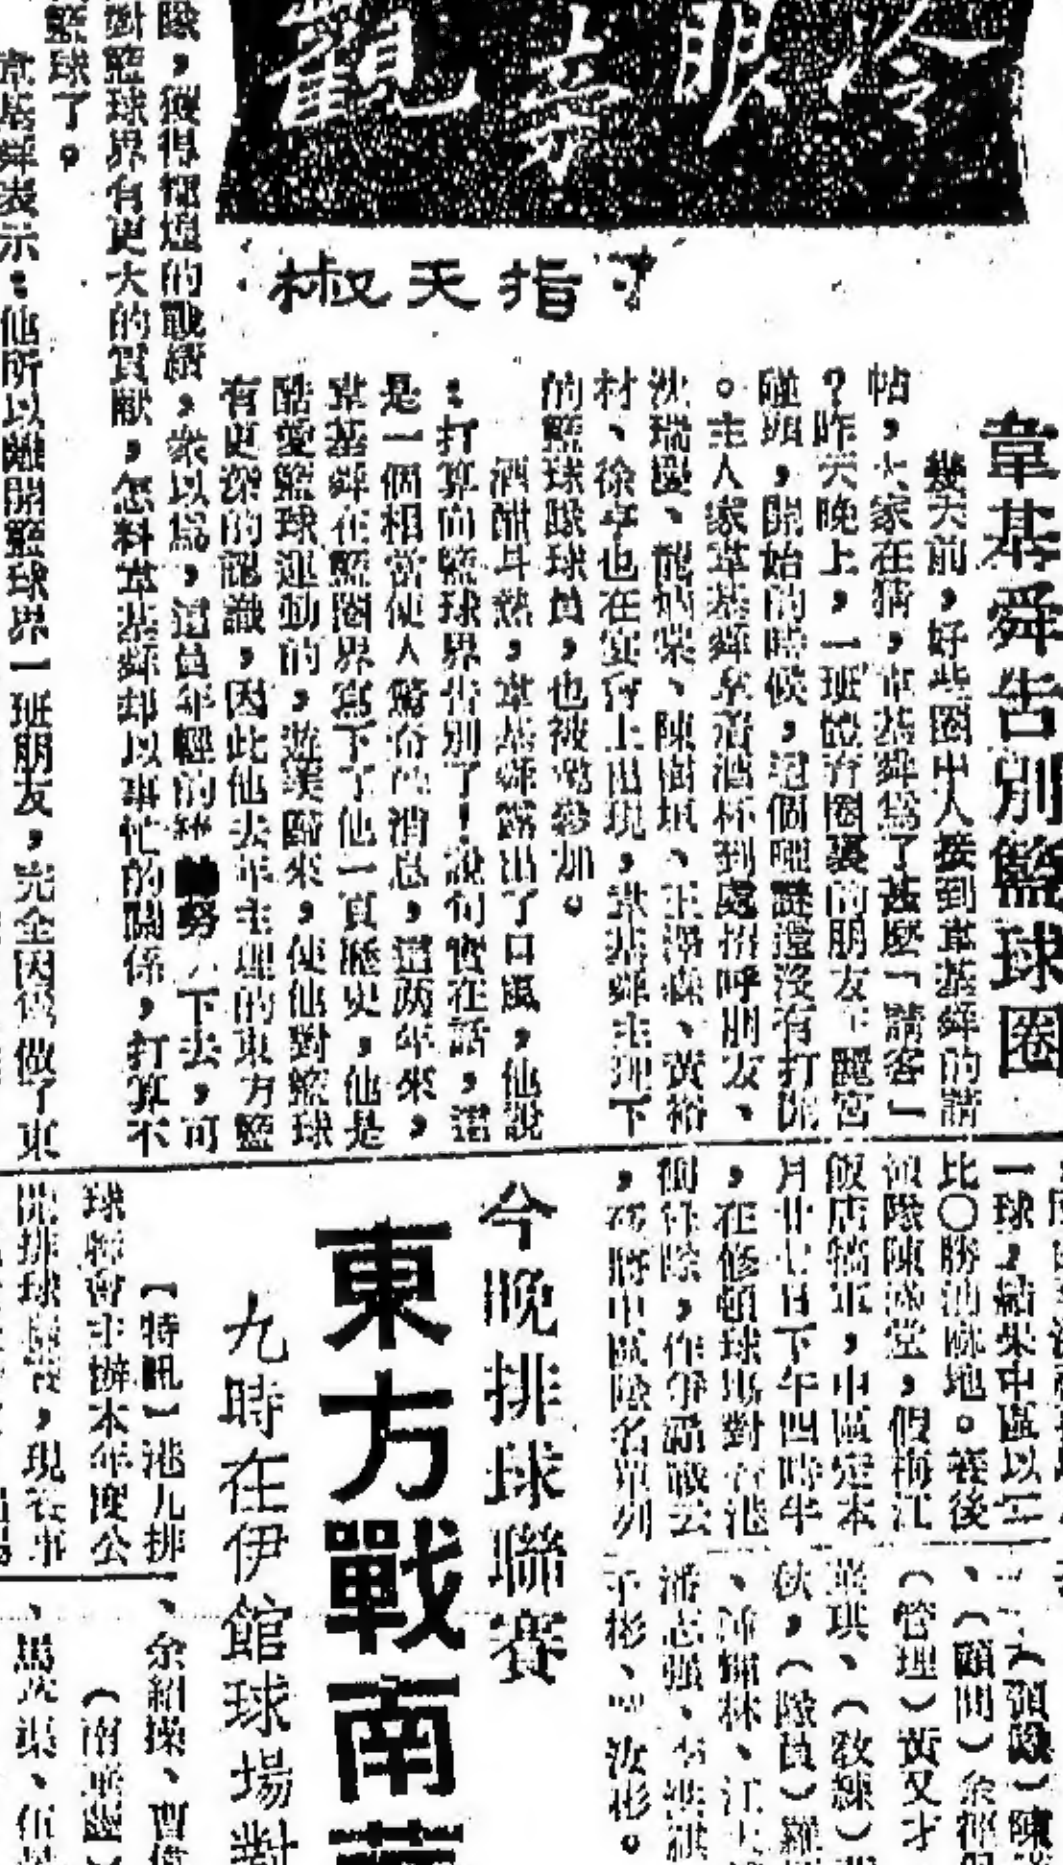 冷眼旁觀
指天椒
韋基舜告別籃球圈
幾天前,好些圈中人接到韋基舜的請
帖,大家在猜,韋基舜爲了甚麽「請客」
?昨天晚上,一班體育圈裏的朋友在麗宮
碰頭,開始的時候,這個啞謎還沒有打開
。主人家韋基舜拿着酒杯到處招呼朋友、
沈瑞慶、龍炳榮、陳樹垣、王澤森、黃裕
材、徐亨也在宴會上出現,韋基舜主理下
的籃球隊球員,也被邀參加。
酒酣耳熱,韋基舜露出了口風,他說
:打算向籃球界告別了!說句實在話,這
是一個相當使人驚奇的消息,這兩年來,
韋基舜在籃圈界寫下了他一頁歷史,他是
酷愛籃球運動的,遊美歸來,使他對籃球
有更深的認識,因此他去年主理的東方籃
隊,獲得輝煌的戰績,衆以爲,這員年輕的
努 下去,可
對籃球界有更大的貢獻,怎料韋基舜却以事忙的關係,打算不
籃球了。
韋基舜表示:他所以離開籃球界一班朋友,完全因爲做了東
一球,結果中區以三
比〇勝油蔴地。賽後
領隊陳 堂,假梅江
飯店犒軍,中區定本
月廿七日下午四時半
,在修頓球場對香港
仔隊,作爭 戰云
,茲將中區隊名單列
(領隊)陳
、(顧問)余
(管理)黃又才
葉琪、(教練)
,(隊員)羅
輝林、江
潘志强、李洪祺
子彬、 汝彬。
今晚排球聯賽
東方戰南華
九時在伊館球場對
【特訊】港九排
球 會主辦本年度公
開排球 ,現在事
、余紹操、曹
(南華鹽)
、馬 、伍